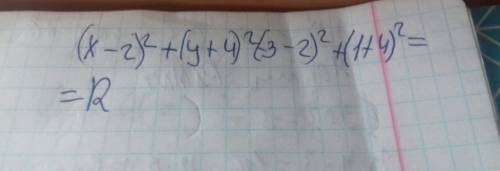 (x-2)²+(y+4)²(3-2)²+(1+4)²=
=R